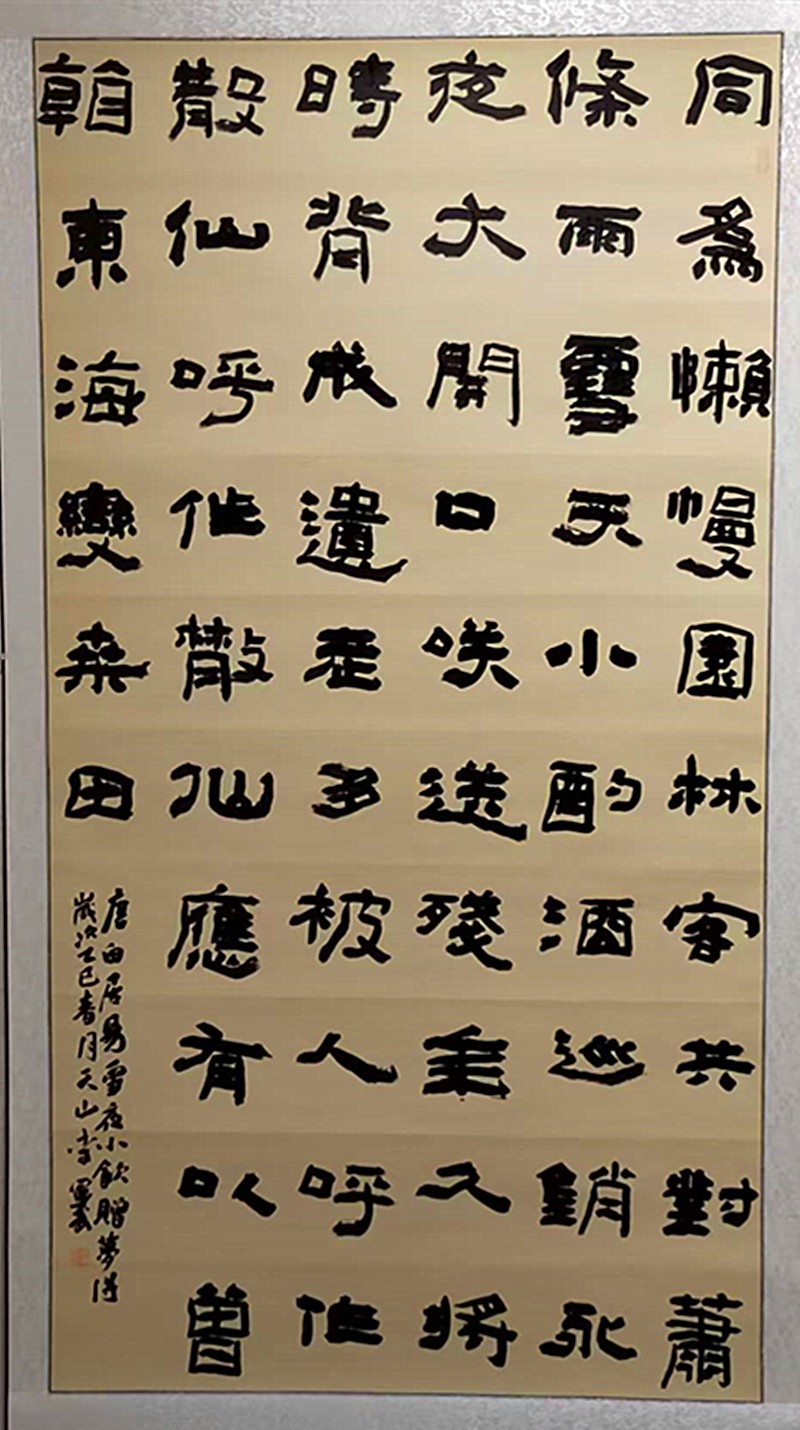 同為懶慢園林客共對蕭
條雨雪天小酌酒巡銷永
夜大開口咲送殘年久將
時背成遺老多被人呼作
散仙呼作散仙應有以曾
看東海變桑田
唐白居易雪夜小飲贈夢得
歲次乙巳春月天山李